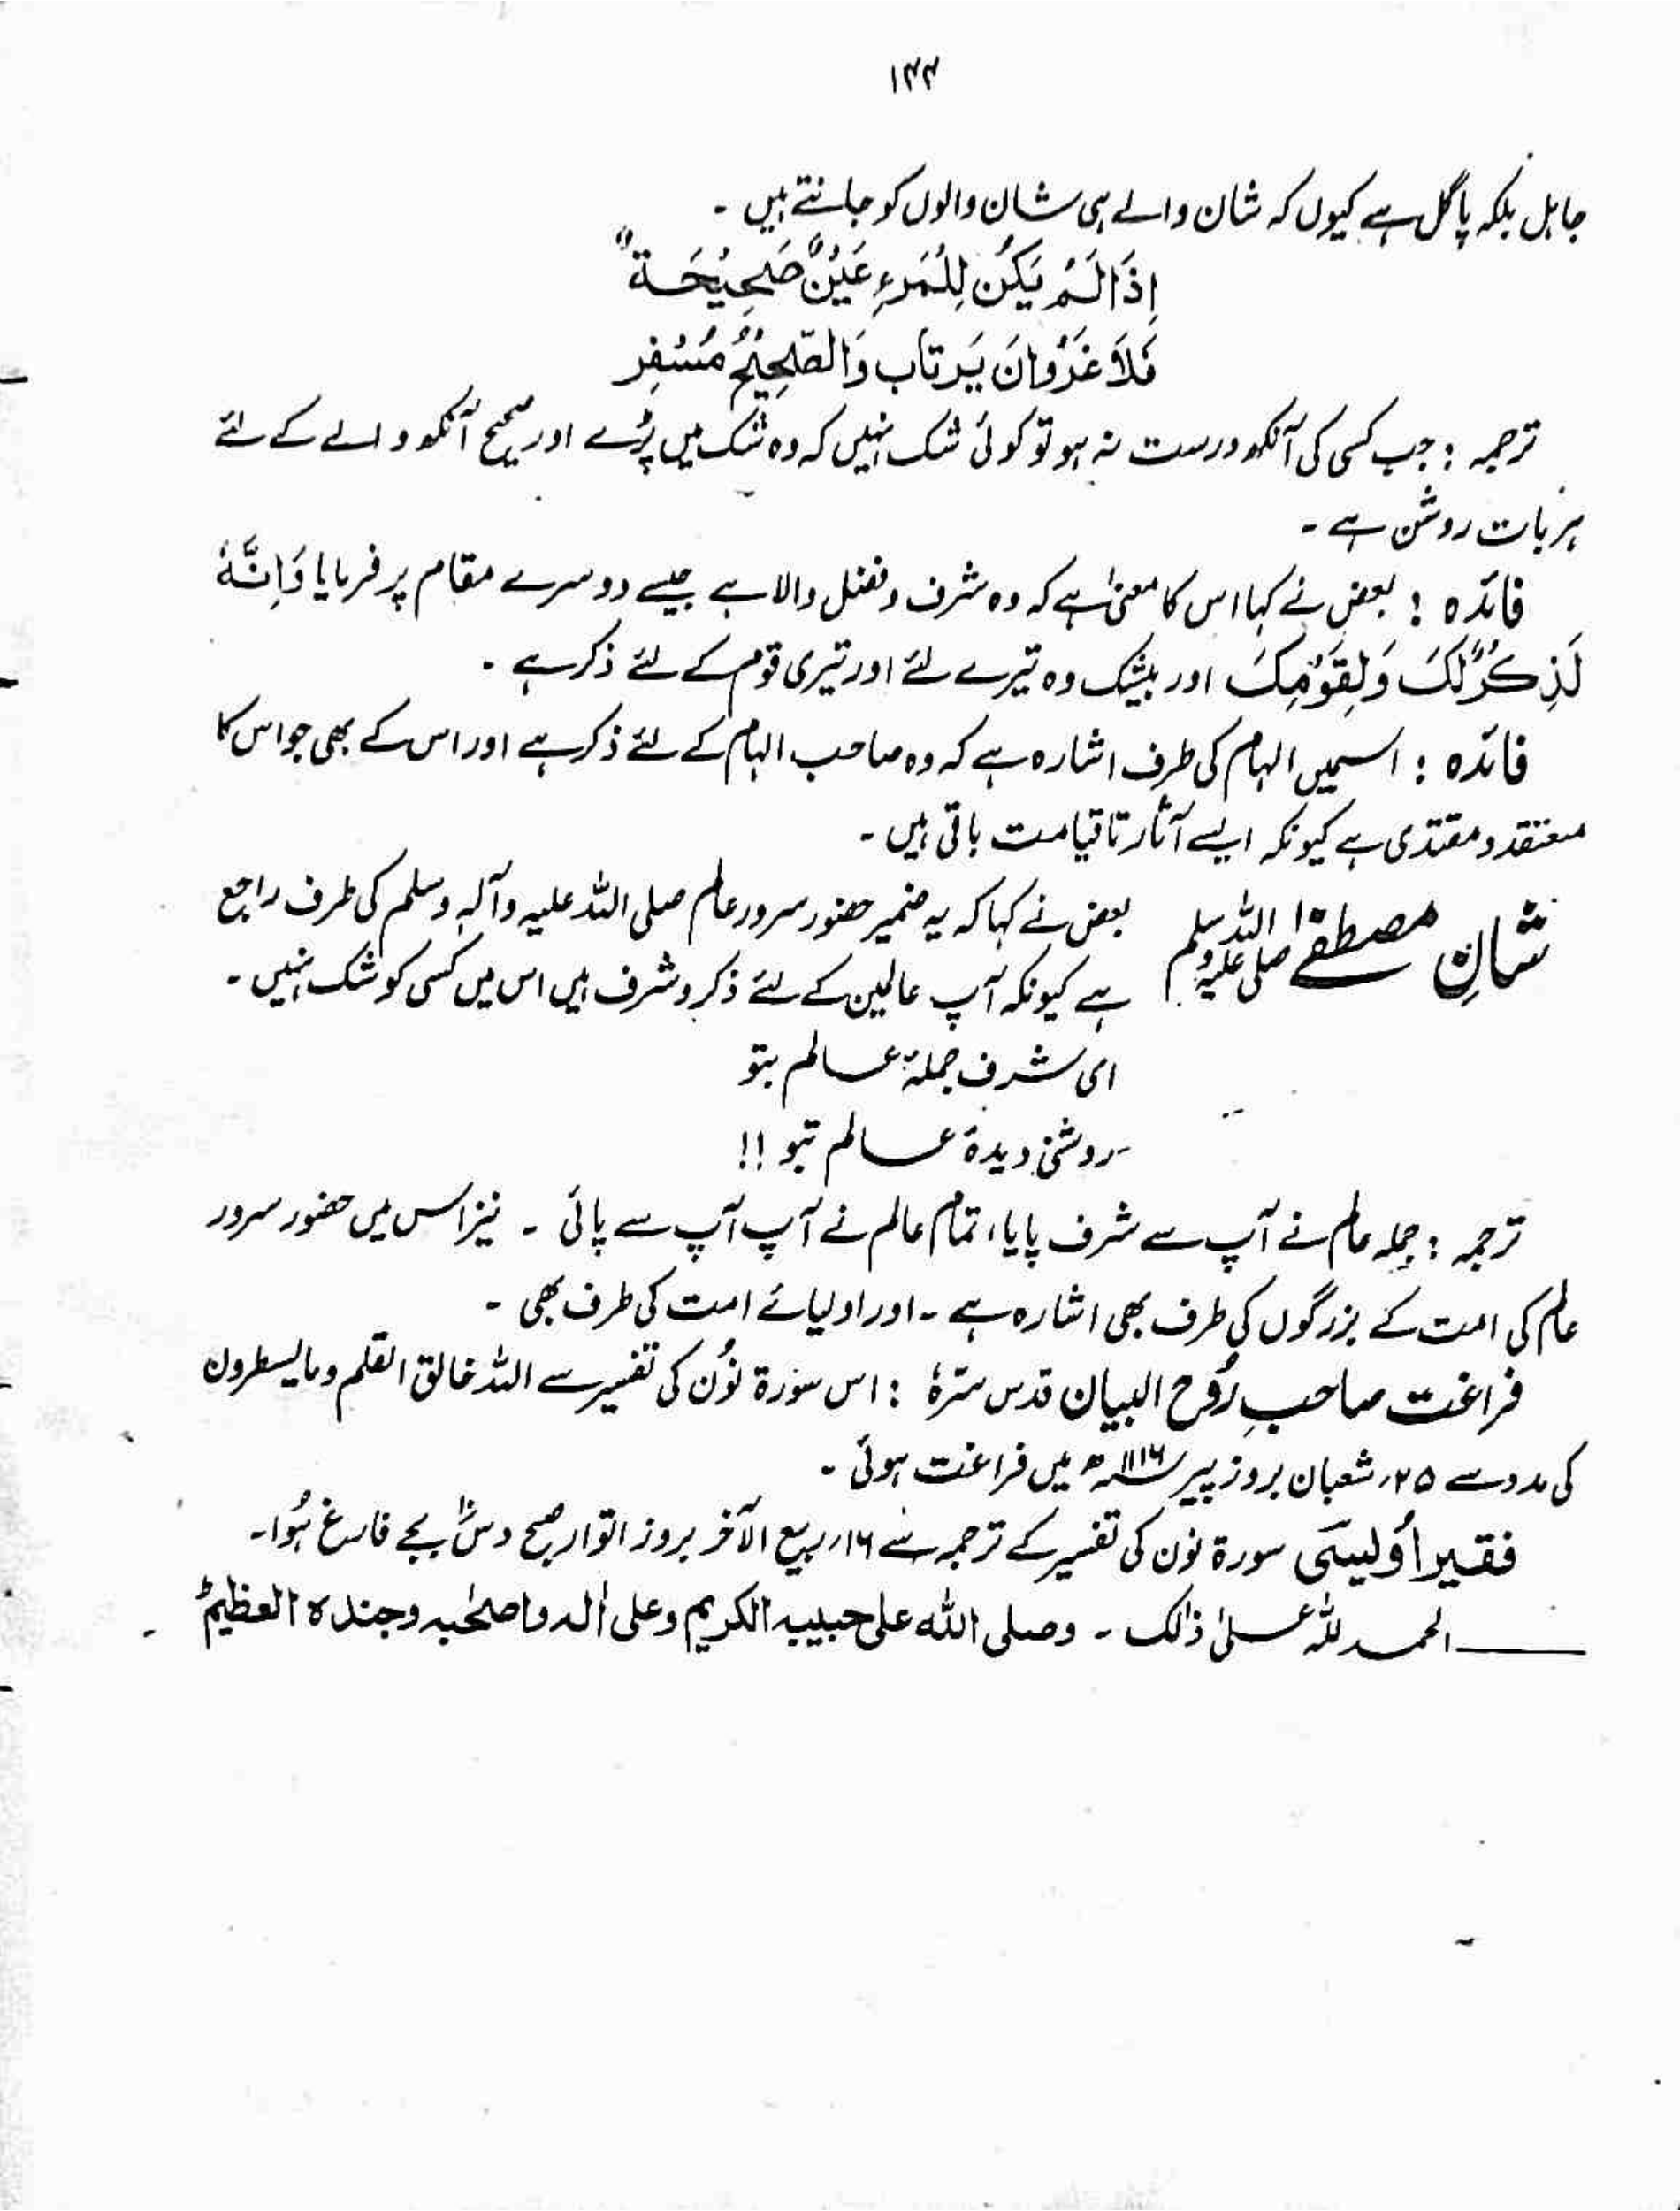 ۱۴۴
جاہل بلکہ پاگل ہے کیوں کہ شان والے ہی شان والوں کو جانتے ہیں ۔
اِذَا لَمْ یَکُنْ لِلْمَرءِ عَیْنٌ صَحِیْحَۃٌ
فَلَا غَرْوَ اَنْ یَرتَاب وَالصَّحِیْحُ مُسْفِر
ترجمہ : جب کسی کی آنکھ درست نہ ہو تو کوئی شک نہیں کہ وہ شک میں پڑے اور صحیح آنکھ والے کے لئے
ہر بات روشن ہے ۔
فائدہ : بعض نے کہا اس کا معنیٰ ہے کہ وہ شرف و فضل والا ہے جیسے دوسرے مقام پر فرمایا وَاِنَّہٗ
لَذِکْرٌ لَّکَ وَلِقَوْمِکَ اور بیشک وہ تیرے لئے اور تیری قوم کے لئے ذکر ہے ۔
فائدہ : اسمیں الہام کی طرف اشارہ ہے کہ وہ صاحب الہام کے لئے ذکر ہے اور اس کے بھی جو اس کا
معتقد و مقتدی ہے کیونکہ ایسے آثار تا قیامت باقی ہیں ۔
شانِ مصطفےٰ صلی اللہ علیہ وسلم بعض نے کہا کہ یہ ضمیر حضور سرور عالم صلی اللہ علیہ وآلہٖ وسلم کی طرف راجع
ہے کیونکہ آپ عالمین کے لئے ذکر و شرف ہیں اس میں کسی کو شک نہیں ۔
ای شرف جملۂ عالم بتو
روشنیٔ دیدۂ عالم تبو !!
ترجمہ : جملہ عالم نے آپ سے شرف پایا، تمام عالم نے آپ آپ سے پائی ۔ نیز اس میں حضور سرور
عالم کی امت کے بزرگوں کی طرف بھی اشارہ ہے ۔ اور اولیائے امت کی طرف بھی ۔
فراغت صاحبِ رُوح البیان قدس سترہٗ : اس سورۃ نوُن کی تفسیر سے اللہ خالق القلم وما یسطرون
کی مدد سے ۲۵؍ شعبان بروز پیر ۱۱۱۶ھ میں فراغت ہوئی ۔
فقیر اُولیسی سورۃ نون کی تفسیر کے ترجمہ سے ۱۶؍ ربیع الآخر بروز اتوار صبح دس بجے فارغ ہُوا۔
الحمد للہ علیٰ ذالک ۔ وصلی اللہ علی حبیبہ الکریم وعلی اٰلہ واصحٰبہ وجندہ العظیمؕ ۔